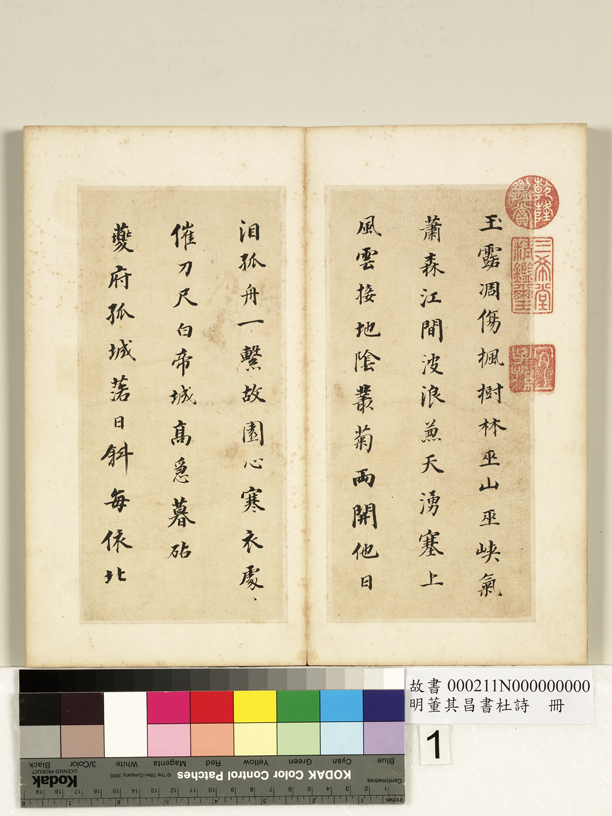 玉露凋傷楓樹林巫山巫峽氣
蕭森江間波浪兼天湧塞上
風雲接地陰叢菊兩開他日
淚孤舟一繫故園心寒衣處、
催刀尺白帝城高急暮砧
夔府孤城落日斜每依北
乾隆鑒賞
三希堂精鑑璽
宜子孫
故書 000211N000000000
明董其昌書杜詩 冊
1
Blue Cyan Green Yellow Red Magenta White 3/Color Black
KODAK Color Control Patches
Kodak
LICENSED PRODUCT
© The Tiffen Company, 2000
Centimetres
Inches